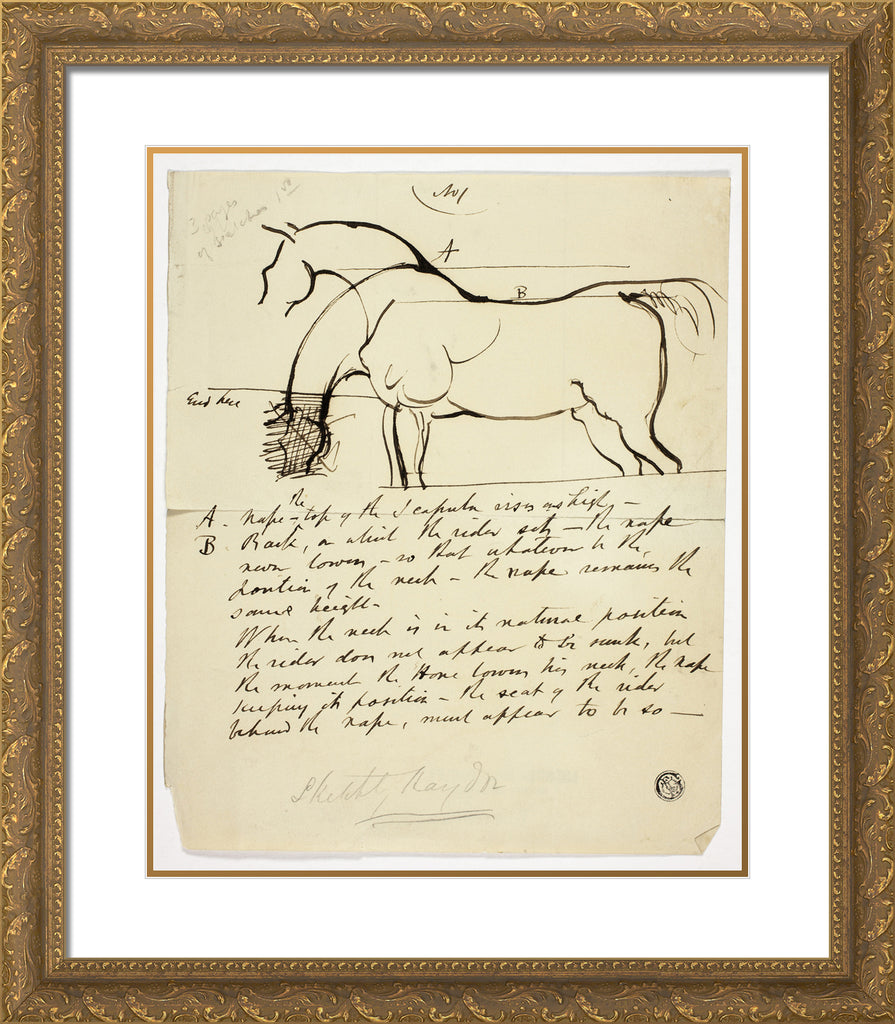 No 1
3 pages
of Sketches 1 50
A
B
End here
A. nape - the top of the Scapula rises as high -
B. Back, on which the rider sets - the nape
never lowers - so that whatever be the
position of the neck - the nape remains the
same height -
When the neck is in its natural position
the rider does not appear to be sunk, but
the moment the Horse lowers his neck, the nape
keeping its position - the seat of the rider
behind the nape, must appear to be so -
Sketch by Haydon